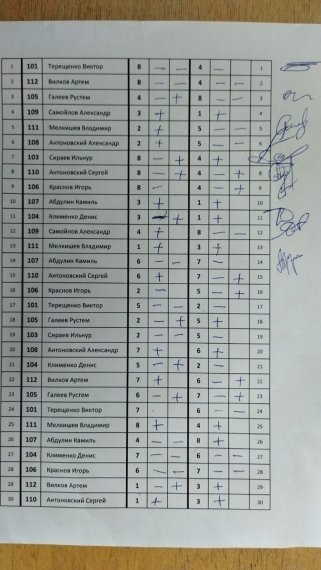 1 101 Терещенко Виктор 8 — — 4 — 1
2 112 Вилков Артем 8 — — 4 — — 2
3 105 Галеев Рустем 4 — + 8 — — 3
4 109 Самойлов Александр 3 + 1 + 4
5 111 Мелкишев Владимир 2 + 5 — — 5
6 108 Антоновский Александр 2 + 5 — — 6
7 103 Сираев Ильнур 8 — + 4 + 7
8 110 Антоновский Сергей 8 — + 4 — + 8
9 106 Краснов Игорь 8 — 4 — + 9
10 107 Абдулин Камиль 3 + 1 + 10
11 104 Клименко Денис 3 + 1 + 11
12 109 Самойлов Александр 4 + 8 — — 12
13 111 Мелкишев Владимир 1 + 3 + 13
14 107 Абдулин Камиль 6 — — 7 — 14
15 110 Антоновский Сергей 6 + 7 — + 15
16 106 Краснов Игорь 2 — 5 — + 16
17 101 Терещенко Виктор 5 — — 2 — 17
18 105 Галеев Рустем 2 — + 5 + 18
19 103 Сираев Ильнур 2 — — 5 — 19
20 108 Антоновский Александр 7 + 6 + 20
21 104 Клименко Денис 5 — + 2 — 21
22 112 Вилков Артем 7 + 6 — + 22
23 105 Галеев Рустем 6 — + 7 — + 23
24 101 Терещенко Виктор 7 6 — — 24
25 111 Мелкишев Владимир 8 + 4 + 25
26 107 Абдулин Камиль 4 — — 8 + 26
27 104 Клименко Денис 7 — — 6 — — 27
28 106 Краснов Игорь 6 — — 7 — — 28
29 112 Вилков Артем 1 — + 3 + 29
30 110 Антоновский Сергей 1 + 3 + 30